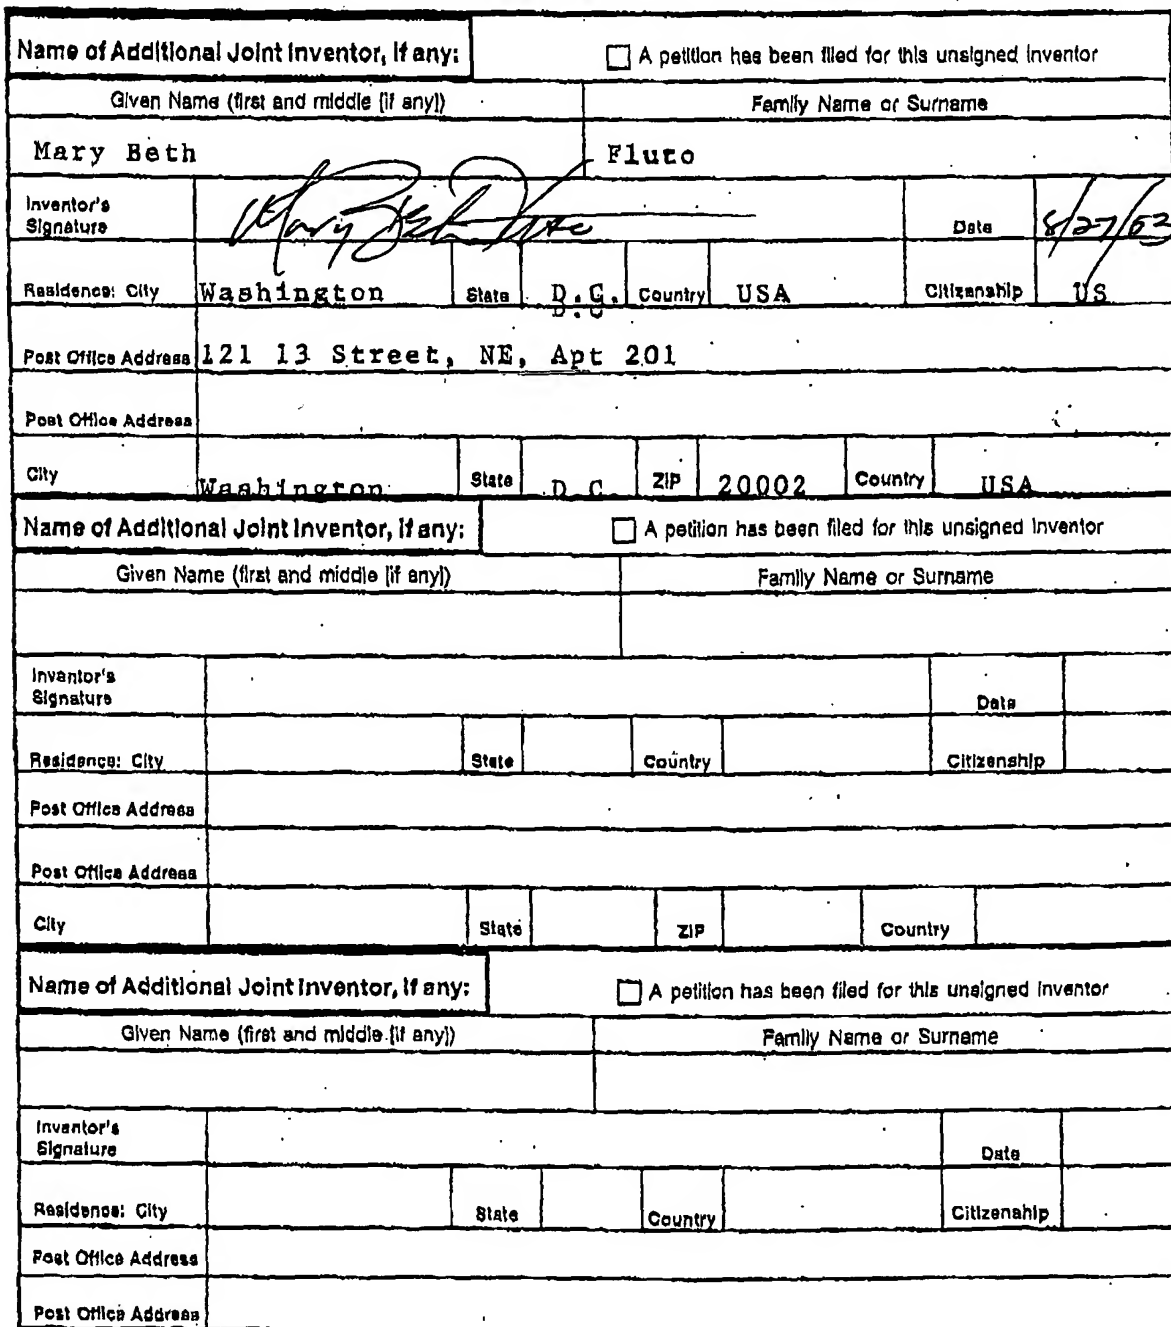 Name of Additional Joint Inventor, if any: A petition has been filed for this unsigned inventor
Given Name (first and middle [if any]) Family Name or Surname
Mary Beth Fluto
Inventor's Signature Date 8/27/03
Residence: City Washington State D.C. Country USA Citizenship US
Post Office Address 121 13 Street, NE, Apt 201
Post Office Address
City Washington State D.C. ZIP 20002 Country USA
Name of Additional Joint Inventor, if any: A petition has been filed for this unsigned inventor
Given Name (first and middle [if any]) Family Name or Surname
Inventor's Signature Date
Residence: City State Country Citizenship
Post Office Address
Post Office Address
City State ZIP Country
Name of Additional Joint Inventor, if any: A petition has been filed for this unsigned inventor
Given Name (first and middle [if any]) Family Name or Surname
Inventor's Signature Date
Residence: City State Country Citizenship
Post Office Address
Post Office Address